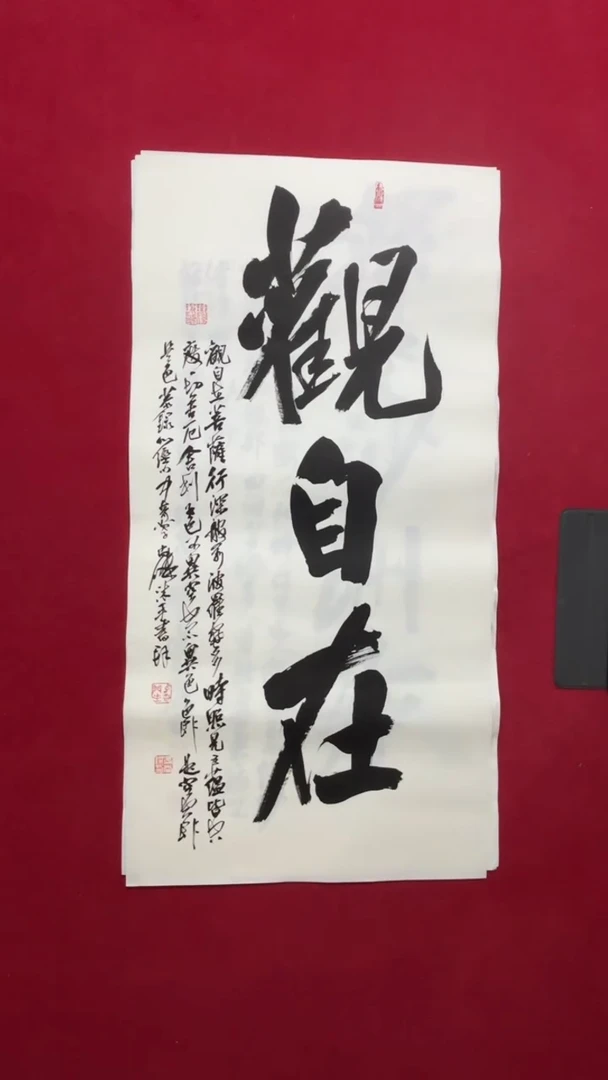 觀自在
觀自在菩薩行深般若波羅蜜多時照見五蘊皆空
度一切苦厄舍利子色不異空空不異色色即是空空即
是色 節錄心經
書